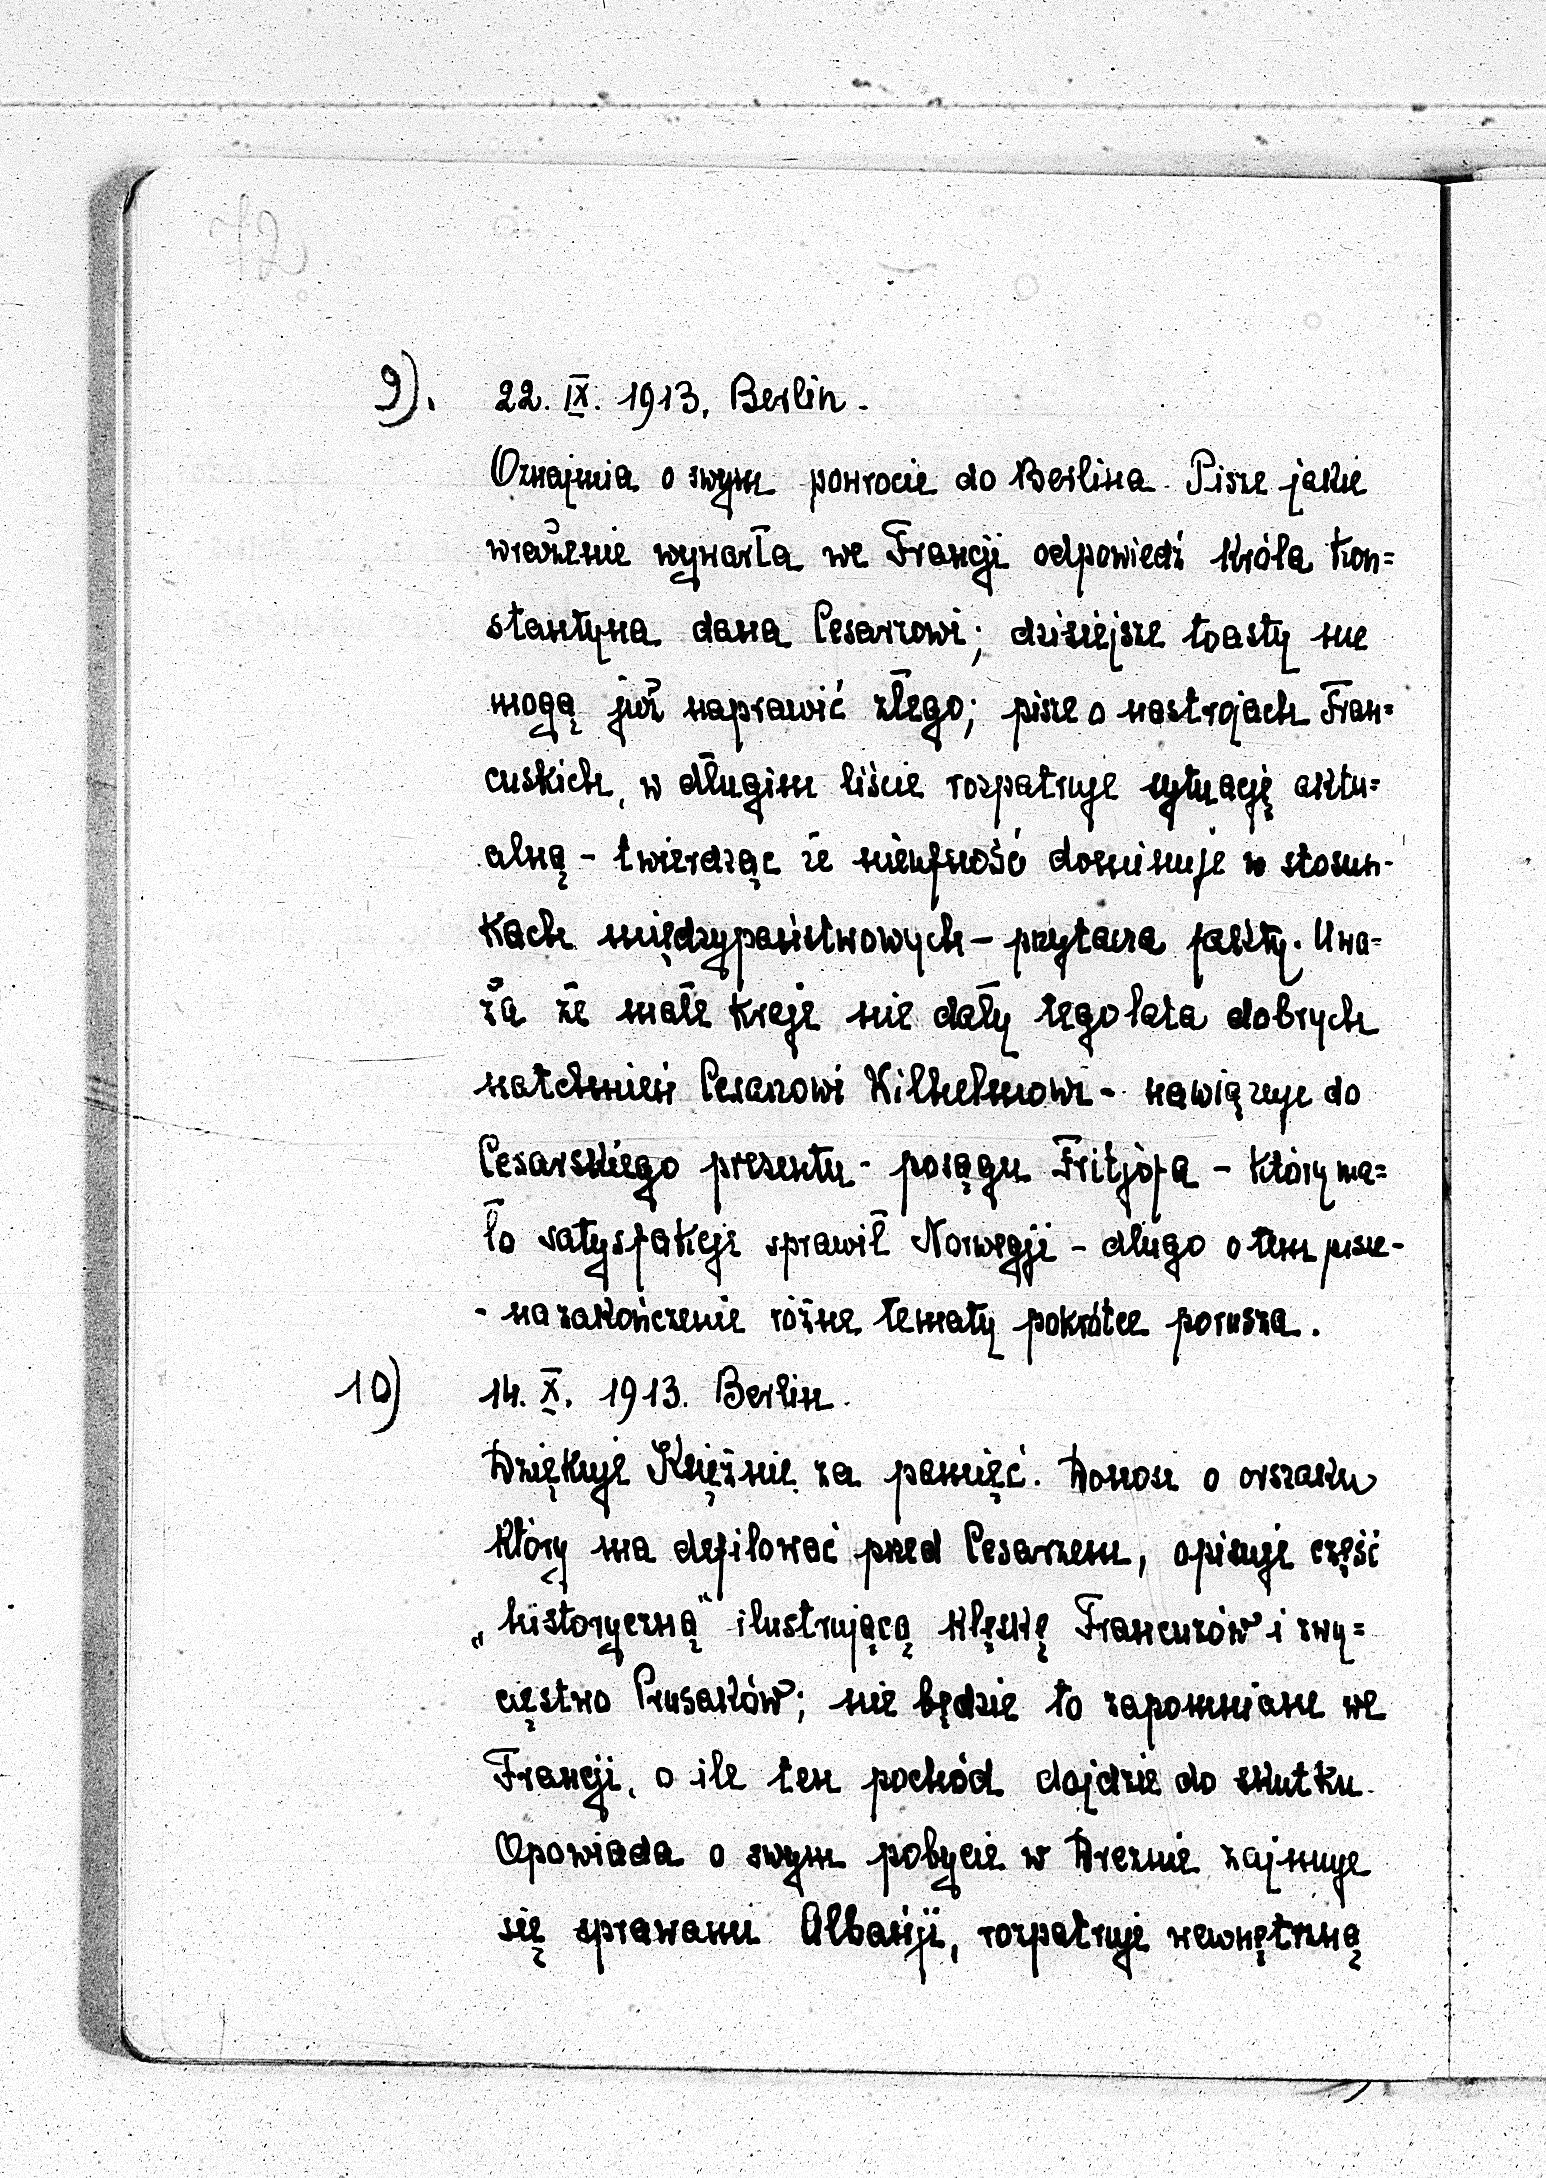 9). 22. IX. 1913. Berlin.
Oznajmia o swym powrocie do Berlina. Pisze jakie
wrażenie wywarła we Francji odpowiedź Króla Kon=
stantyna dana Cesarzowi; dzisiejsze toasty nie
mogą już naprawić złego; pisze o nastrojach Fran=
cuskich, w długim liście rozpatruje sytuację aktu=
alną - twierdząc że nieufność dominuje w stosun-
kach międzypaństwowych - przytacza fakty. Uwa=
ża że małe kraje nie dały tego lata dobrych
natchnień Cesarzowi Wilhelmowi - nawiązuje do
Cesarskiego prezentu - posągu Fritjófa - który ma=
ło satysfakcji sprawił Norwegji - długo o tem pisze -
- na zakończenie różne tematy pokrótce porusza.
10) 14. X. 1913. Berlin.
Dziękuje Księżnie za pamięć. Donosi o orszaku
który ma defilować przed Cesarzem, opisuje część
„historyczną" ilustrującą klęskę Francuzów i zwy=
cięstwo Prusaków; nie będzie to zapomniane we
Francji, o ile ten pochód dojdzie do skutku.
Opowiada o swym pobycie w Dreznie zajmuje
się sprawami Albanji, rozpatruje wewnętrzną